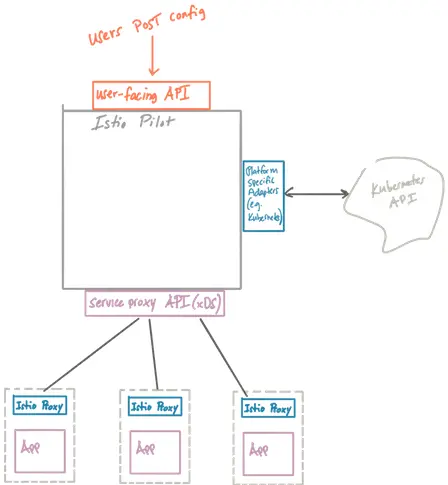 Users POST config
User-facing API
Istio Pilot
Platform
Specific
Adapters
(e.g.
Kubernetes)
Kubernetes
API
Service proxy API (xDS)
Istio Proxy
Istio Proxy
Istio Proxy
App
App
App